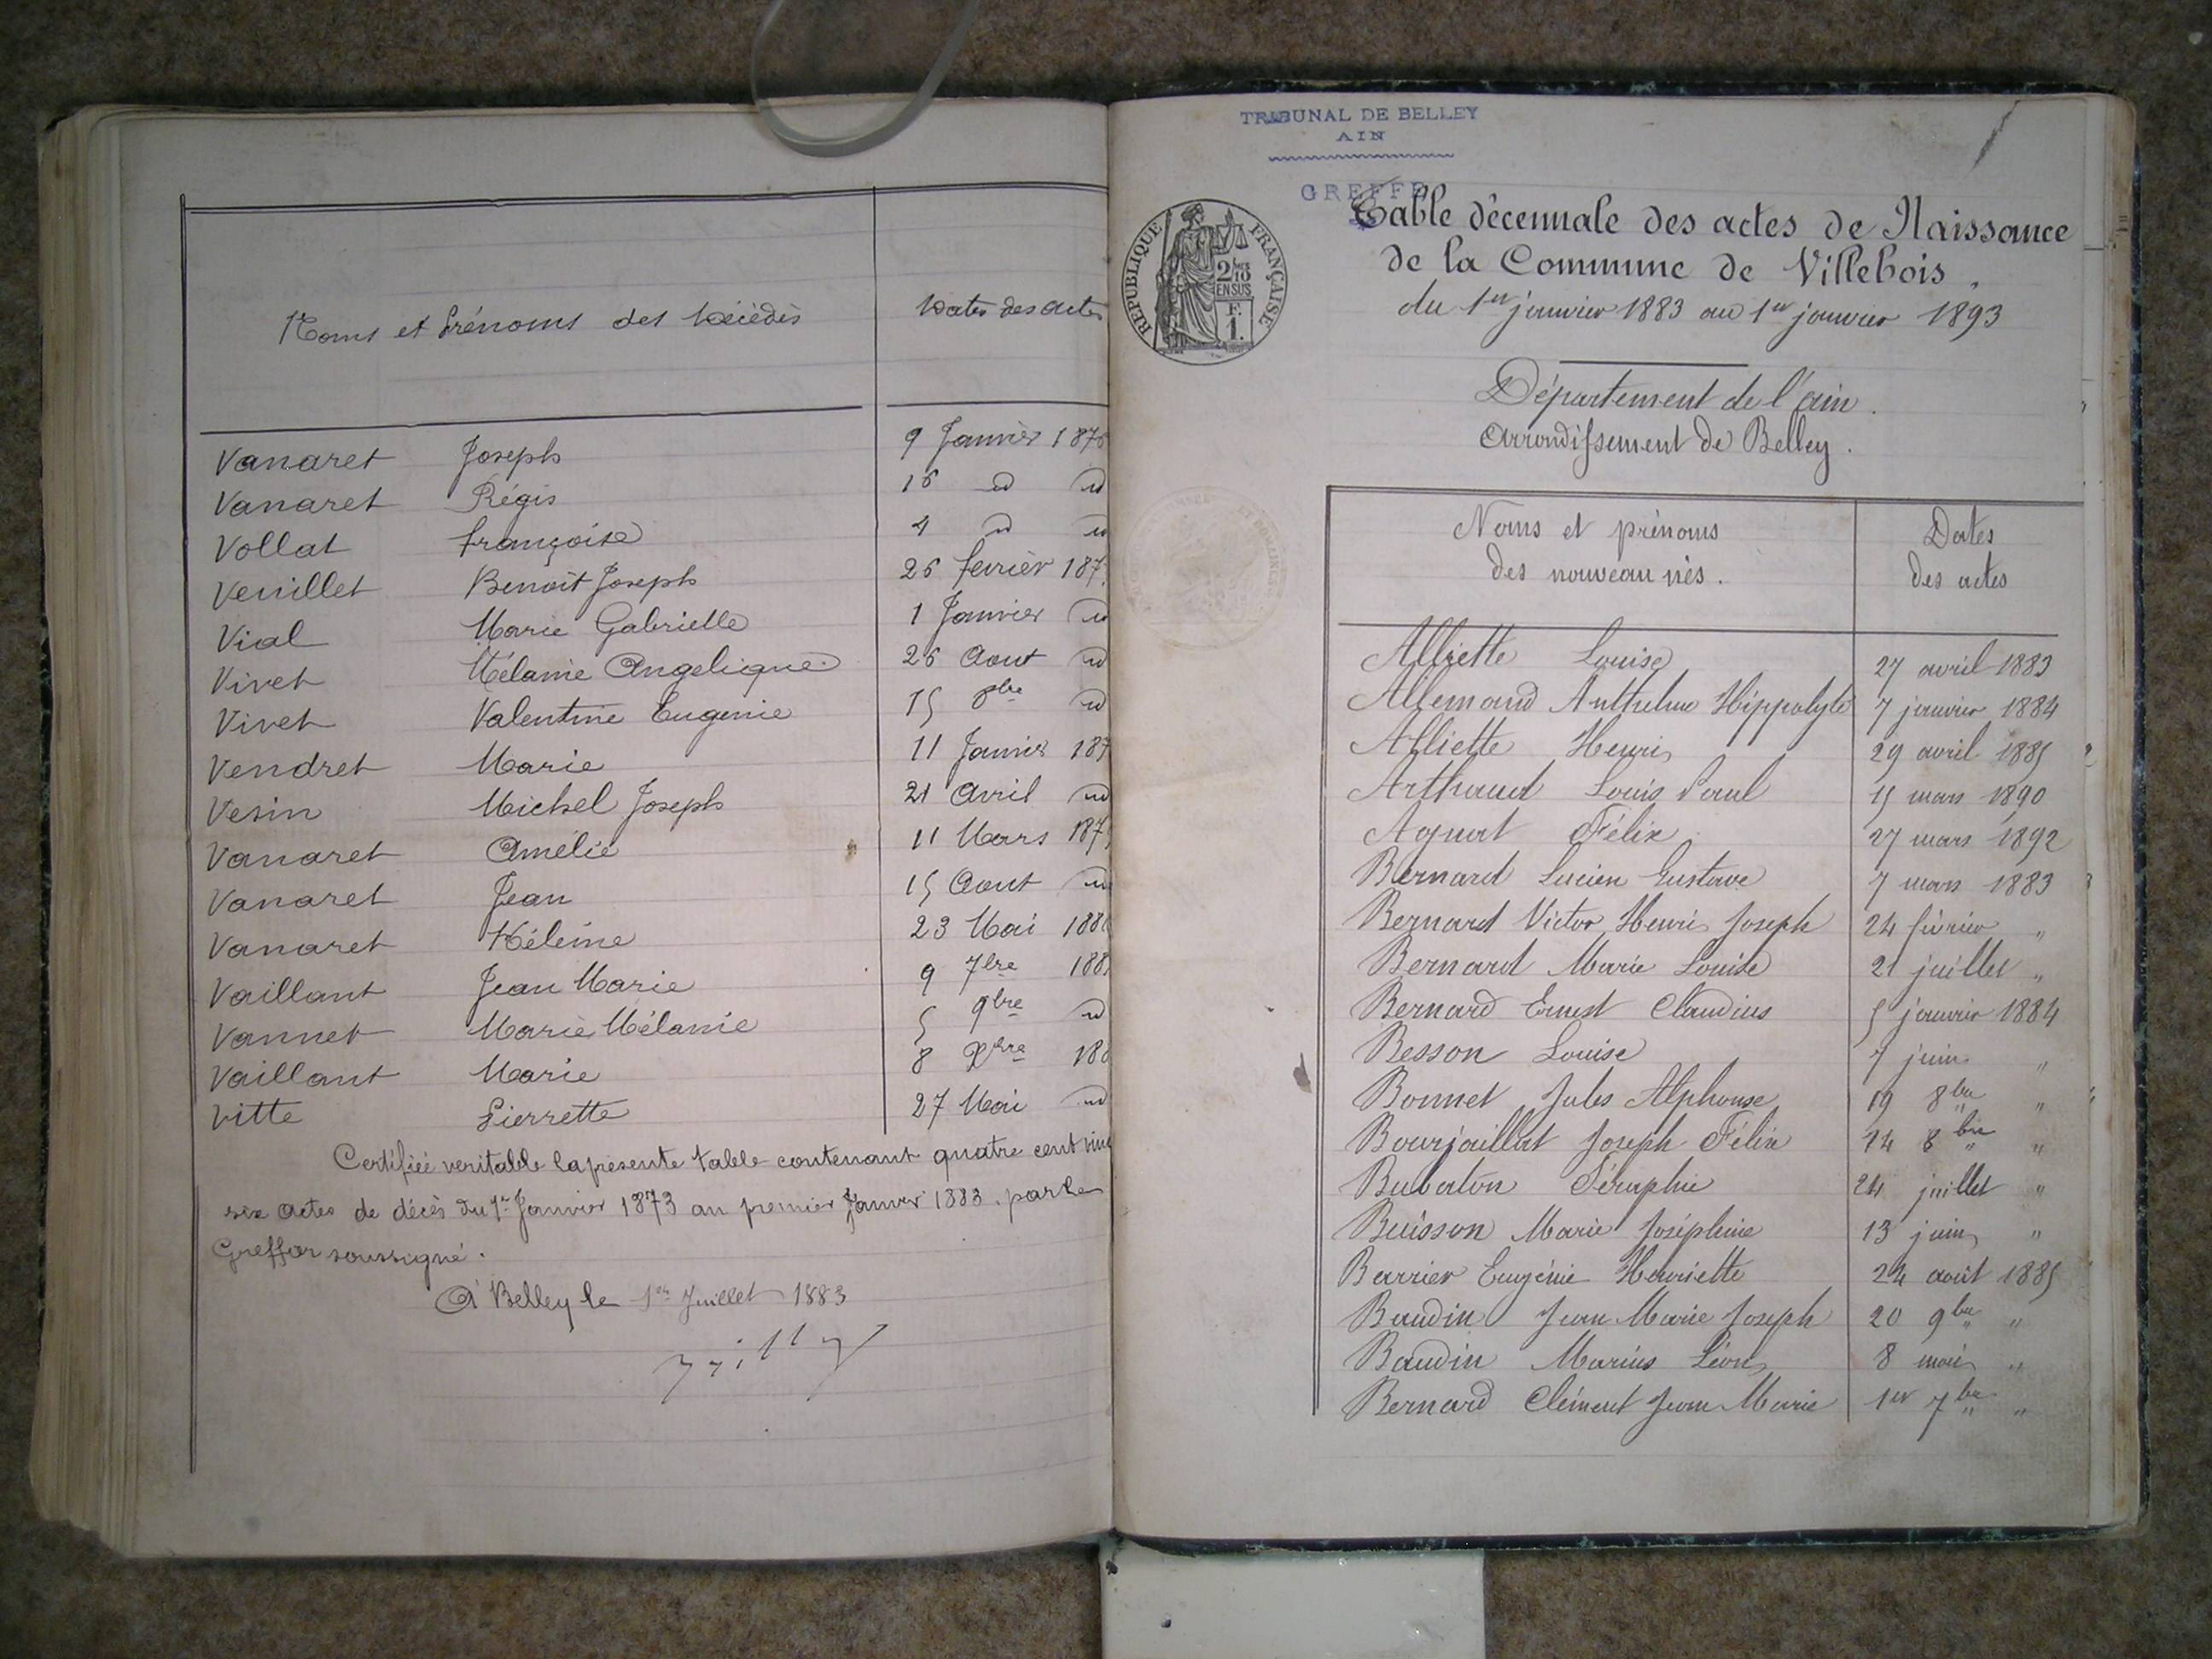 Noms et Prénoms des Décédés
Dates des actes
Vanaret Joseph 9 Janvier 1876
Vanaret Régis 16 d d
Vollat françoise 4 d d
Veuillet Benoit Joseph 26 fevrièr 187
Vial Marie Gabrielle 1 Janvier d
Vivet Mélanie Angelique 26 Aout d
Vivet Valentine Eugenie 15 8bre d
Vendret Marie 11 Janvier 187
Vesin Michel Joseph 21 Avril d
Vanaret Amélie 11 Mars 187
Vanaret Jean 15 Aout d
Vanaret Héleine 23 Mai 188
Vaillant Jean Marie 9 7bre 188
Vannet Marie Mélanie 5 9bre d
Vaillant Marie 8 Xbre 188
Vitte Pierrette 27 Mai d
Certifiée veritable la présente table contenant quatre cent ving
six actes de décès du 1er Janvier 1873 au premier Janvier 1883. par le
Greffier soussigné.
A Belley le 1er Juillet 1883
TRIBUNAL DE BELLEY
AIN
GREFFE
REPUBLIQUE FRANÇAISE
2/10
EN SUS
F.
1.
Table décennale des actes de Naissance
de la Commune de Villebois.
du 1er janvier 1883 au 1er janvier 1893
Département de l'ain.
Arrondissement de Belley.
Noms et prénoms
des nouveau nés.
Dates
des actes
Alliette Louise 27 avril 1883
Allemand Anthelme Hippolyte 7 janvier 1884
Alliette Henri 29 avril 1885
Arthaud Louis Paul 15 mars 1890
Agnat Félix 27 mars 1892
Bernard Lucien Gustave 7 mars 1883
Bernard Victor Henri Joseph 24 février "
Bernard Marie Louise 21 juillet "
Bernard Ernest Claudius 5 janvier 1884
Besson Louise 7 juin "
Bonnet Jules Alphonse 19 8bre "
Bourjaillat Joseph Félix 14 8bre "
Bubaton Séraphie 24 juillet "
Buisson Marie Joséphine 13 juin "
Barrier Eugénie Henriette 24 août 1885
Baudin Jean Marie Joseph 20 9bre "
Baudin Marius Léon 8 mai "
Bernard Clément Jean Marie 1er 7bre "